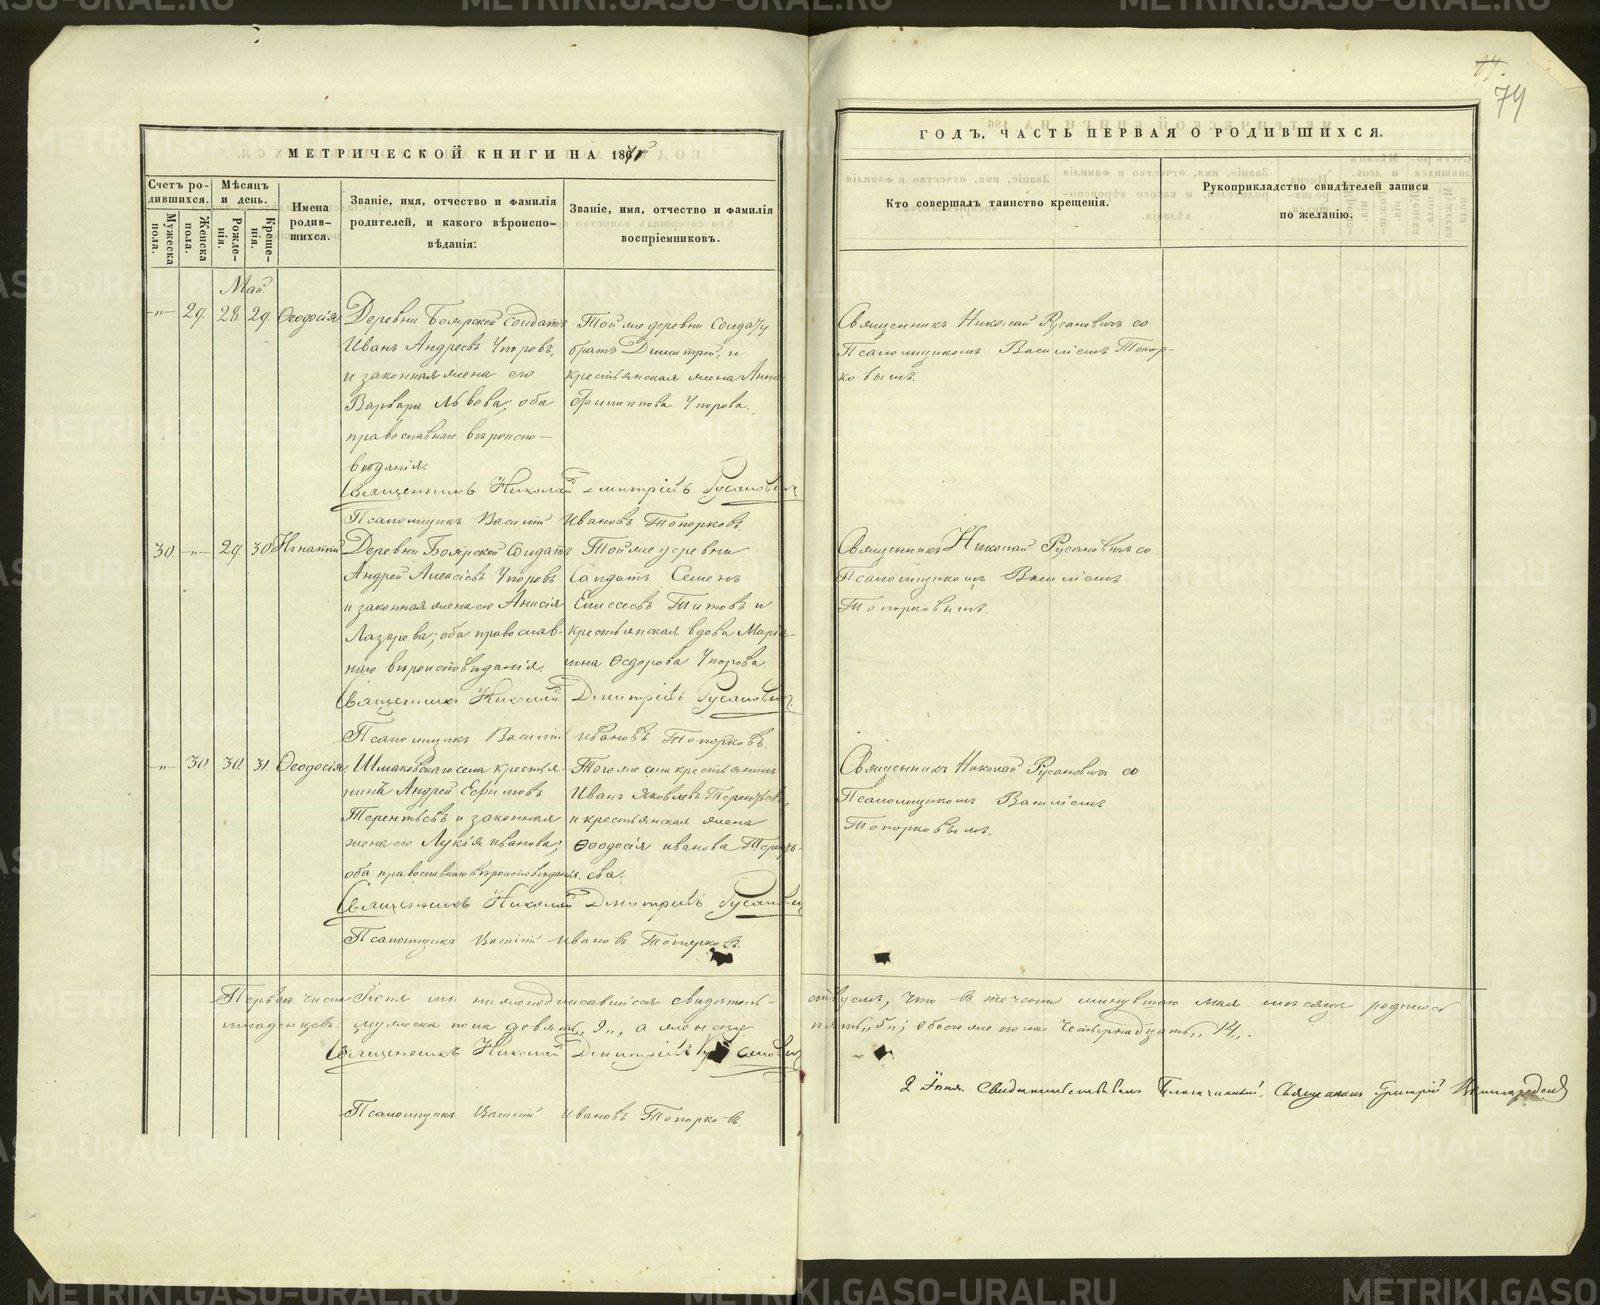 74
МЕТРИЧЕСКОЙ КНИГИ НА 1871
ГОДЪ, ЧАСТЬ ПЕРВАЯ О РОДИВШИХСЯ.
Счетъ родившихся.
Мужеска пола.
Женска пола.
Мѣсяцъ и день.
Рожденія.
Крещенія.
Имена родившихся.
Званіе, имя, отчество и фамилія
родителей, и какого вѣроиспо-
вѣданія:
Званіе, имя, отчество и фамилія
воспріемниковъ.
Кто совершалъ таинство крещенія.
Рукоприкладство свидѣтелей записи
по желанію.
Май
-„- 29. 28. 29. Ѳеодосія
Деревни Боярской солдатъ
Иванъ Андреевъ Упоровъ,
и законная жена его
Варвара Львова; оба
православнаго вѣроиспо-
вѣданія.
Той же деревни солдату
братъ Димитрій, и
крестьянская жена Анна
Филиппова Упорова.
Священникъ Николай Русановичъ со
Псаломщикомъ Василіемъ Топор-
ковымъ.
Священникъ Николай Дмитріевъ Русановичъ
Псаломщикъ Василій Ивановъ Топорковъ
30. -„- 29. 30. Игнатій
Деревни Боярской солдатъ
Андрей Алексѣевъ Упоровъ
и законная жена его Анисія
Лазарева; оба православ-
наго вѣроисповѣданія.
Той же деревни
Солдатъ Семенъ
Елисеевъ Титовъ и
крестьянская вдова Марі-
Ѳедорова Упорова
Священникъ Николай Русановичъ со
Псаломщикомъ Василіемъ
Топорковымъ.
Священникъ Николай Дмитріевъ Русановичъ
Псаломщикъ Василій Ивановъ Топорковъ.
-„- 30. 30. 31. Ѳеодосія
Шмаковскаго села крестья-
нинъ Андрей Ефимовъ
Терентьевъ и законная
жена его Лукія Иванова;
оба православнаго вѣроисповѣданія.
Того же села крестьянинъ
Иванъ Яковлевъ Терентьевъ,
и крестьянская жена
Ѳеодосія Иванова Терен-
ева.
Священникъ Николай Русановичъ со
Псаломщикомъ Василіемъ
Топорковымъ.
Священникъ Николай Дмитріевъ Русановичъ
Псаломщикъ Василій Ивановъ Топорковъ.
Перваго числа Іюня мы нижеподписавшіеся свидѣтель-
ствуемъ, что въ теченіи минувшаго мая мѣсяца родилось
младенцевъ: мужеска пола девять „9„, а женска
пять „5„; обоего же пола четырнадцать „14„.
Священникъ Николай Дмитріевъ Русановичъ
Псаломщикъ Василій Ивановъ Топорковъ.
2 Іюня. Свидѣтельствовалъ Благочинный, Священникъ Григорій
METRIKI.GASO-URAL.RU